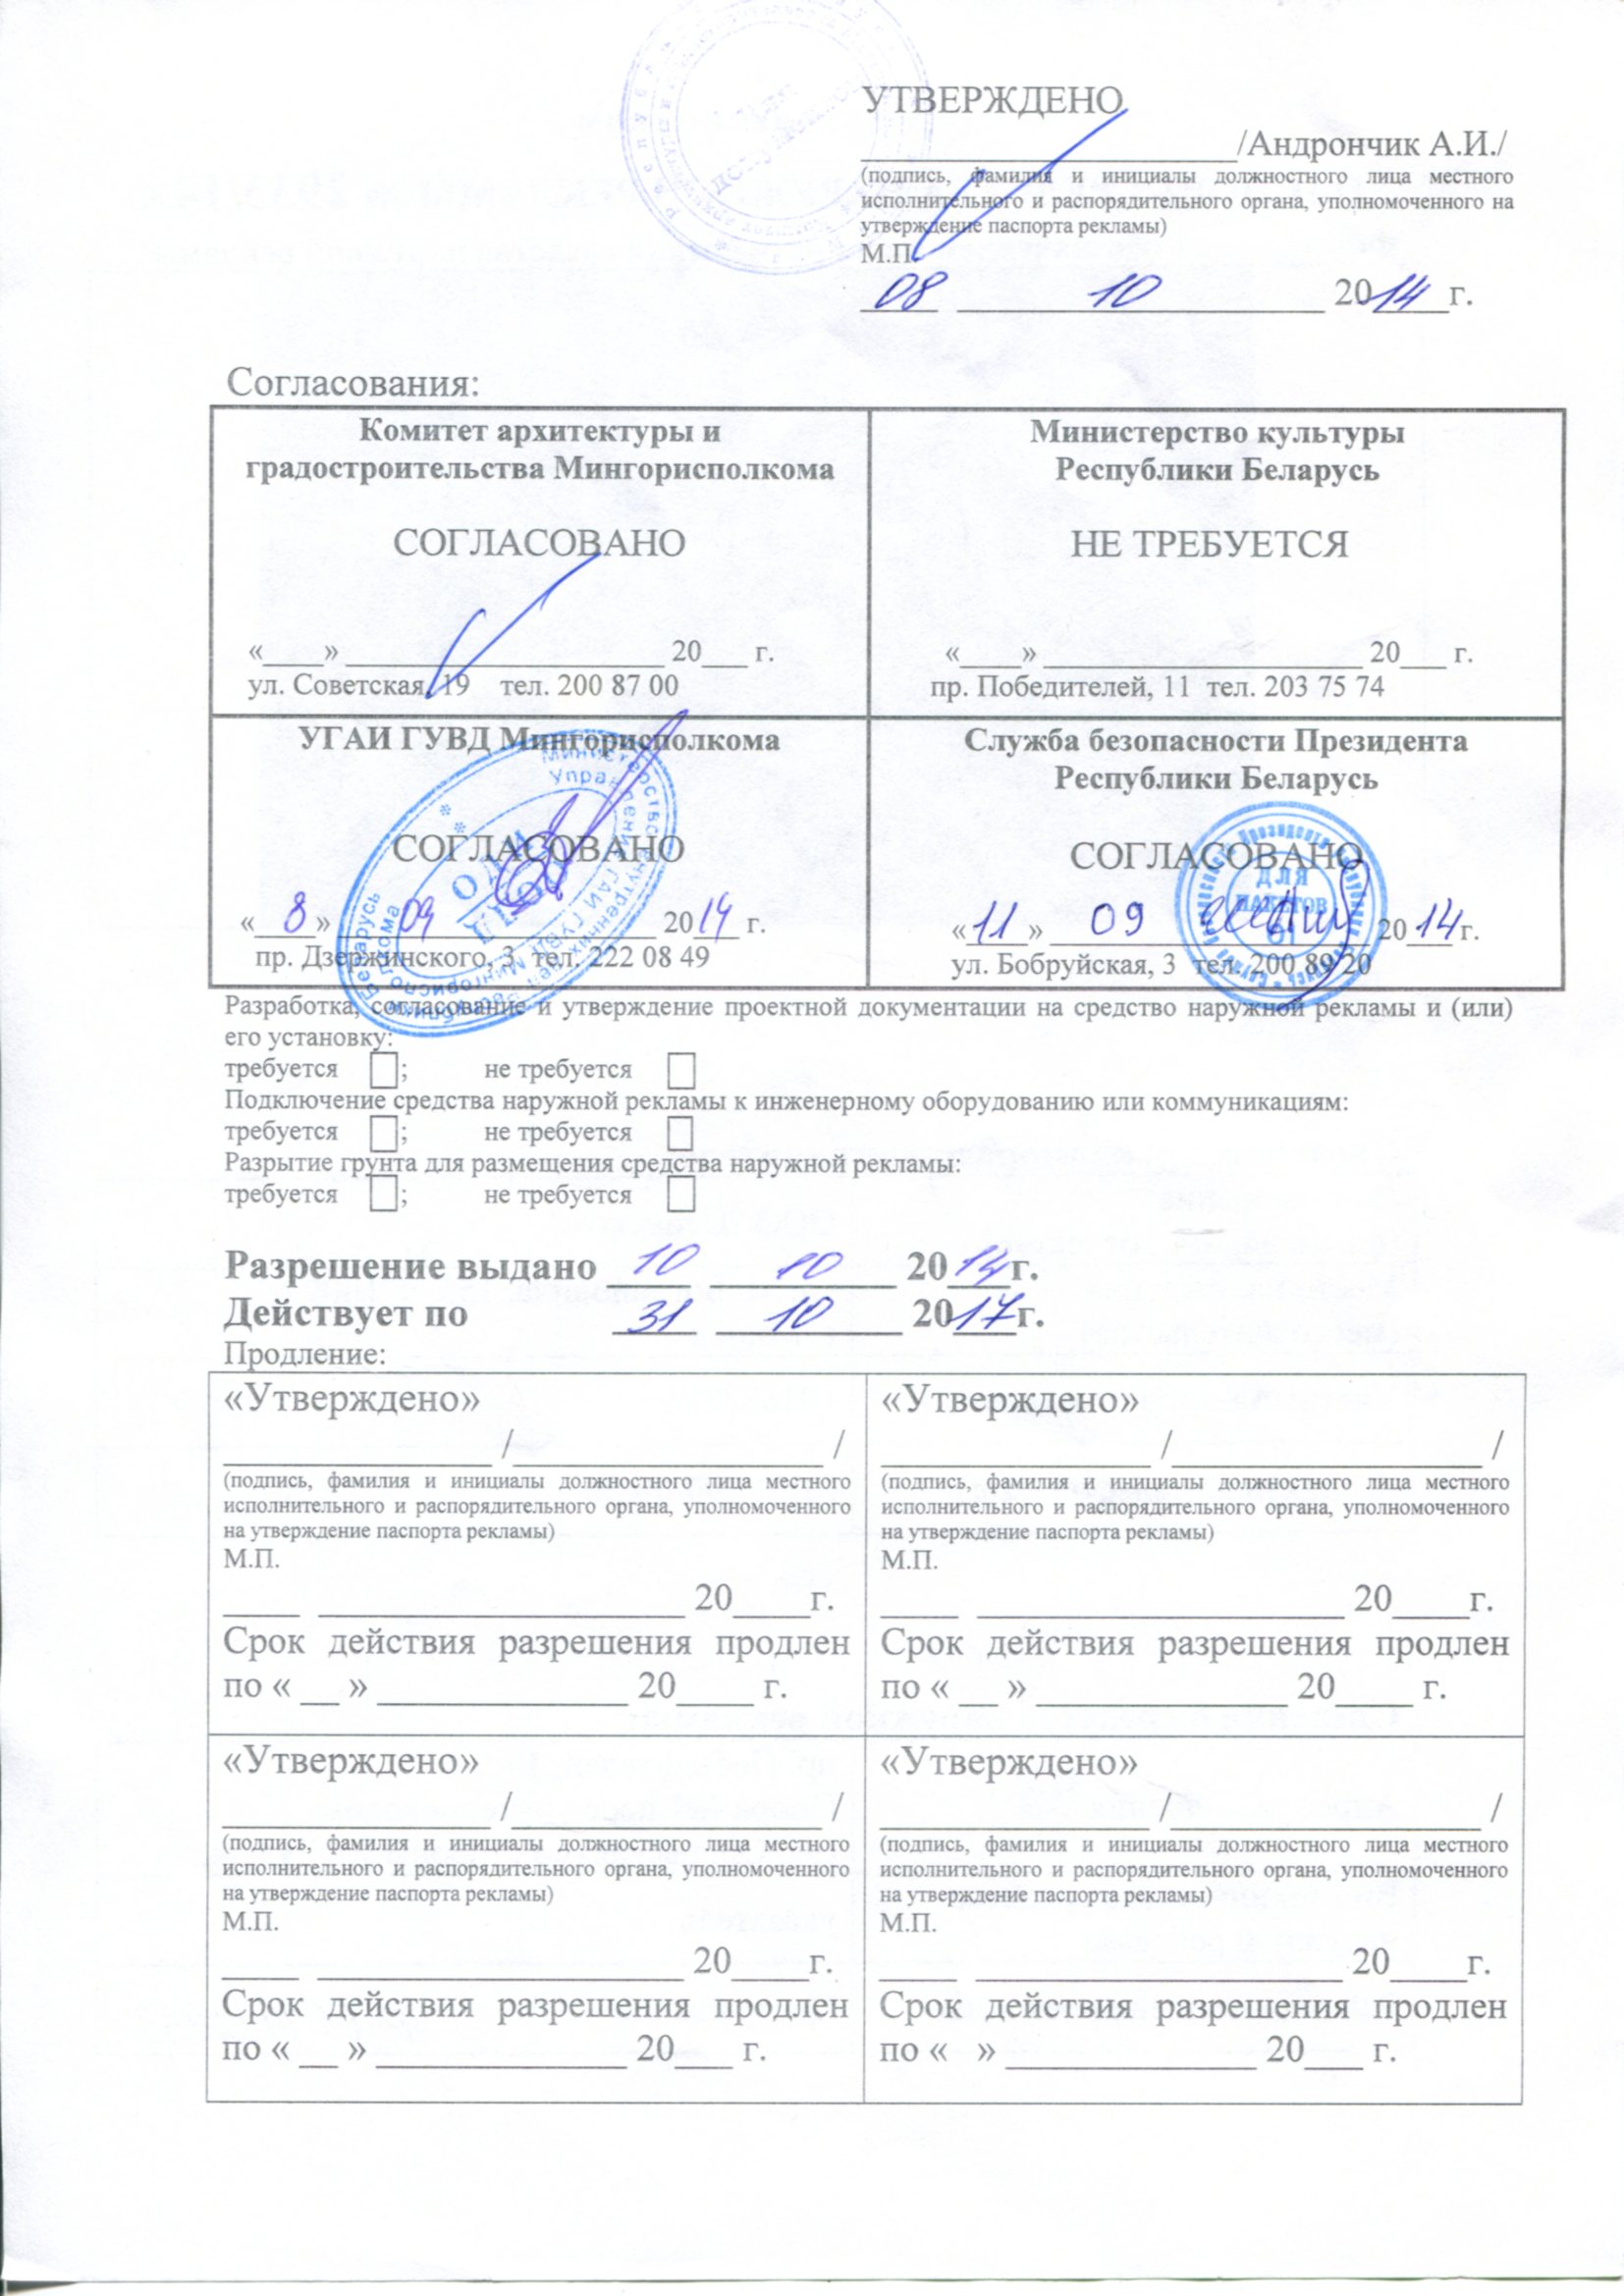 УТВЕРЖДЕНО
/Андрончик А.И./
(подпись, фамилия и инициалы должностного лица местного
исполнительного и распорядительного органа, уполномоченного на
утверждение паспорта рекламы)
М.П.
08 10 2014 г.
Согласования:
Комитет архитектуры и
градостроительства Мингорисполкома
СОГЛАСОВАНО
«____» ____________________ 20___ г.
ул. Советская, 19 тел. 200 87 00
Министерство культуры
Республики Беларусь
НЕ ТРЕБУЕТСЯ
«____» ____________________ 20___ г.
пр. Победителей, 11 тел. 203 75 74
УГАИ ГУВД Мингорисполкома
СОГЛАСОВАНО
«8» 09 2014 г.
пр. Дзержинского, 3 тел. 222 08 49
Служба безопасности Президента
Республики Беларусь
СОГЛАСОВАНО
ДЛЯ
ПАКЕТОВ
«11» 09 2014 г.
ул. Бобруйская, 3 тел. 200 89 20
Разработка, согласование и утверждение проектной документации на средство наружной рекламы и (или)
его установку:
требуется ; не требуется
Подключение средства наружной рекламы к инженерному оборудованию или коммуникациям:
требуется ; не требуется
Разрытие грунта для размещения средства наружной рекламы:
требуется ; не требуется
Разрешение выдано 10 10 2014 г.
Действует по 31 10 2017 г.
Продление:
«Утверждено»
______________ /________________ /
(подпись, фамилия и инициалы должностного лица местного
исполнительного и распорядительного органа, уполномоченного
на утверждение паспорта рекламы)
М.П.
____ ___________________ 20____г.
Срок действия разрешения продлен
по « __ » _____________ 20____ г.
«Утверждено»
______________ /________________ /
(подпись, фамилия и инициалы должностного лица местного
исполнительного и распорядительного органа, уполномоченного
на утверждение паспорта рекламы)
М.П.
____ ___________________ 20____г.
Срок действия разрешения продлен
по « __ » _____________ 20____ г.
«Утверждено»
______________ /________________ /
(подпись, фамилия и инициалы должностного лица местного
исполнительного и распорядительного органа, уполномоченного
на утверждение паспорта рекламы)
М.П.
____ ___________________ 20____г.
Срок действия разрешения продлен
по « __ » _____________ 20___ г.
«Утверждено»
______________ /________________ /
(подпись, фамилия и инициалы должностного лица местного
исполнительного и распорядительного органа, уполномоченного
на утверждение паспорта рекламы)
М.П.
____ ___________________ 20____г.
Срок действия разрешения продлен
по « » _____________ 20___ г.